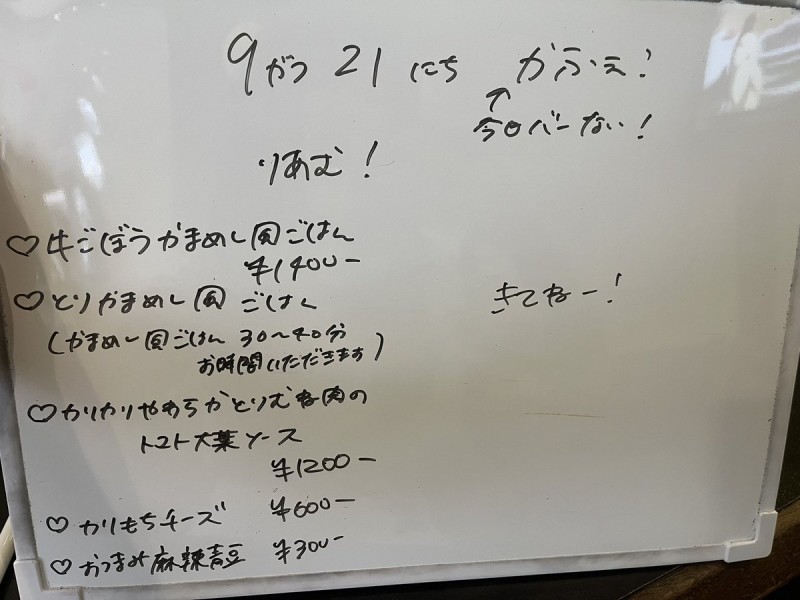 9がつ 21 にち かふぇ!
↑
今日バーない!
りあむ!
♡牛ごぼうかまめし風ごはん
¥1400-
♡とりかまめし風 ごはん
(かまめし風ごはん 30〜40分
お時間いただきます)
きてねー!
♡かりかりやわらかとりむね肉の
トマト大葉ソース
¥1200-
♡かりもちチーズ ¥600-
♡おつまみ麻辣青豆 ¥300-